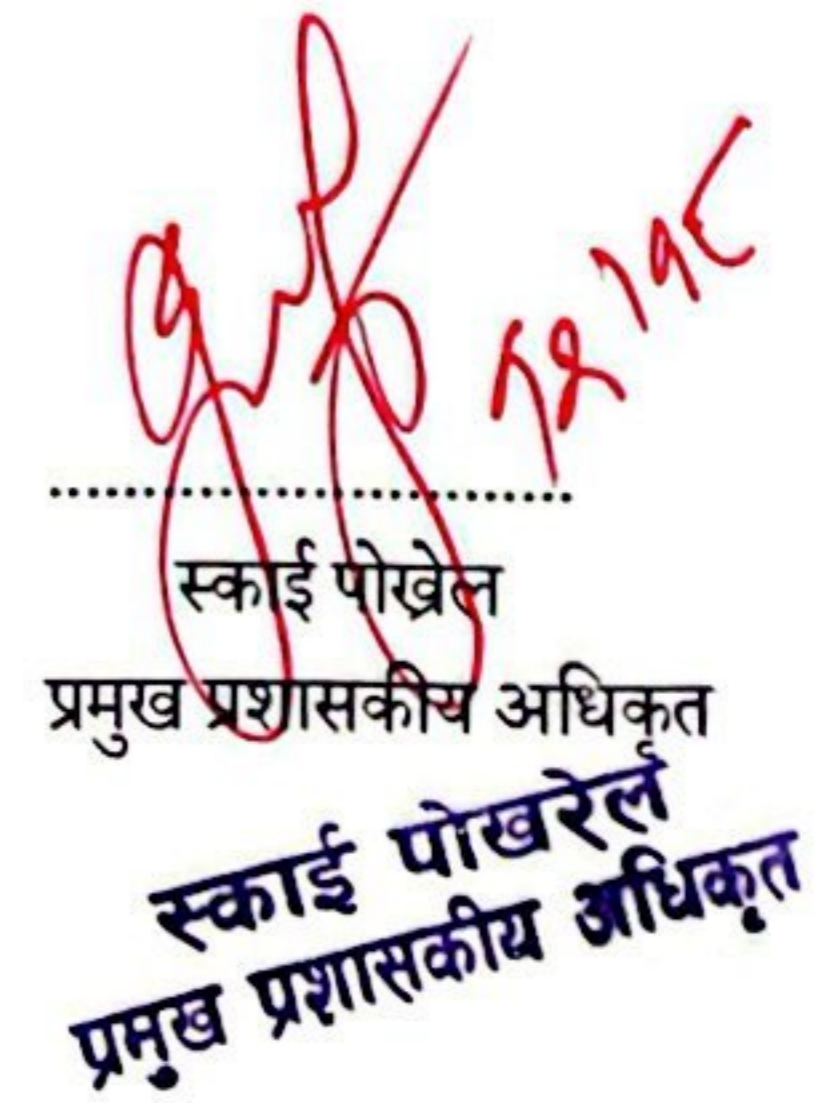 स्काई पोख्रेल
प्रमुख प्रशासकीय अधिकृत
स्काई पोखरेल
प्रमुख प्रशासकीय अधिकृत